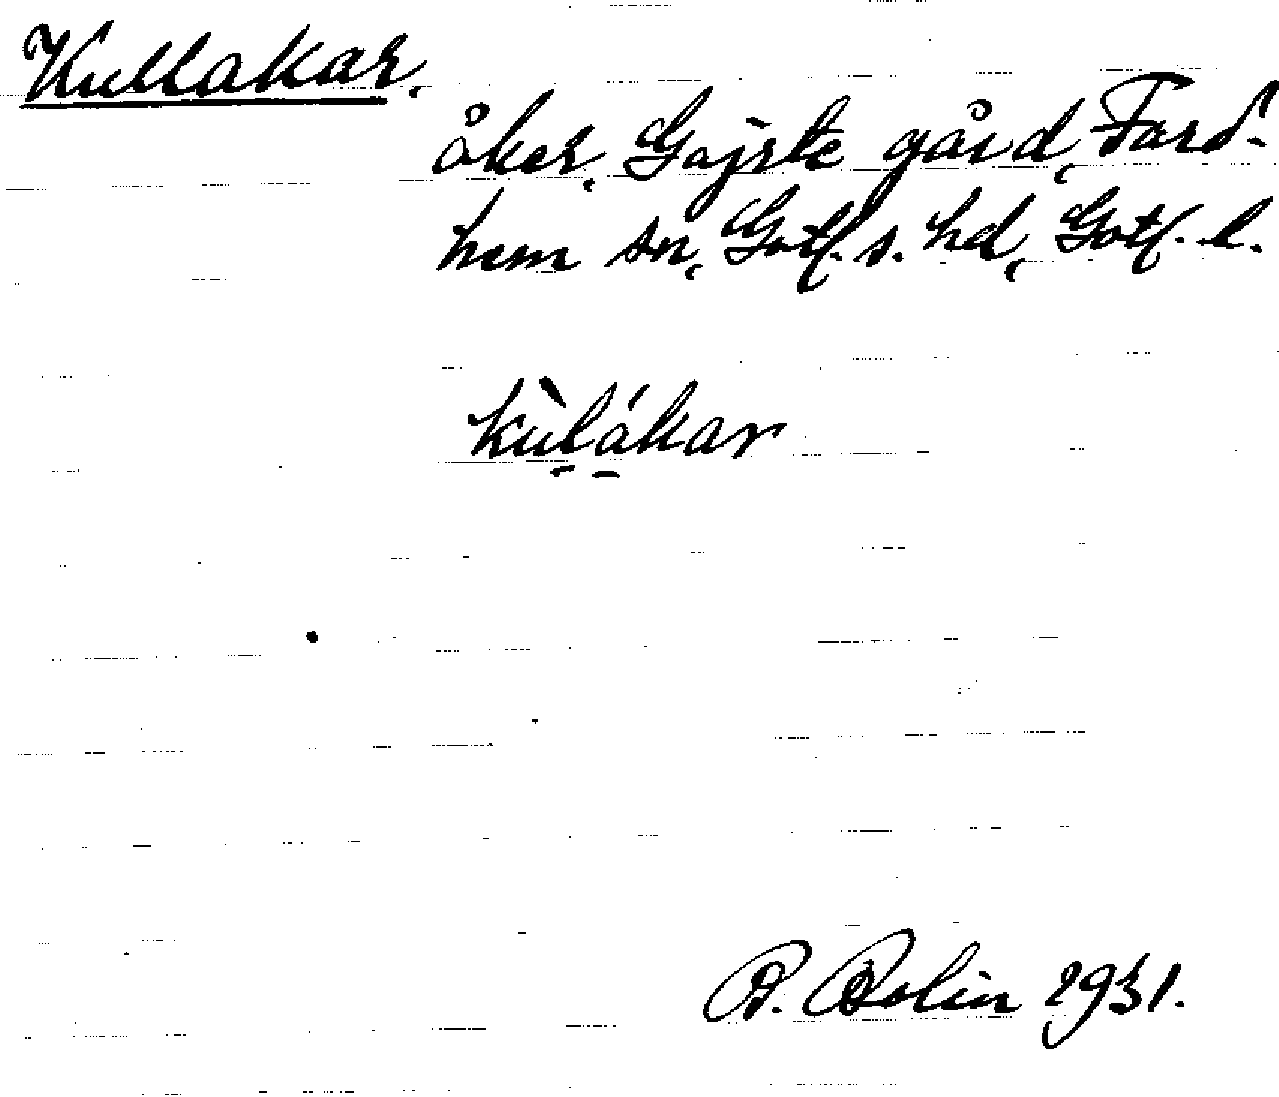 Kullakar,
åker, Gajste gård, Fard-
hem sn, Gotl. s. hd, Gotl. l.
kùl̠á̠kar
B. Bolin 1931.